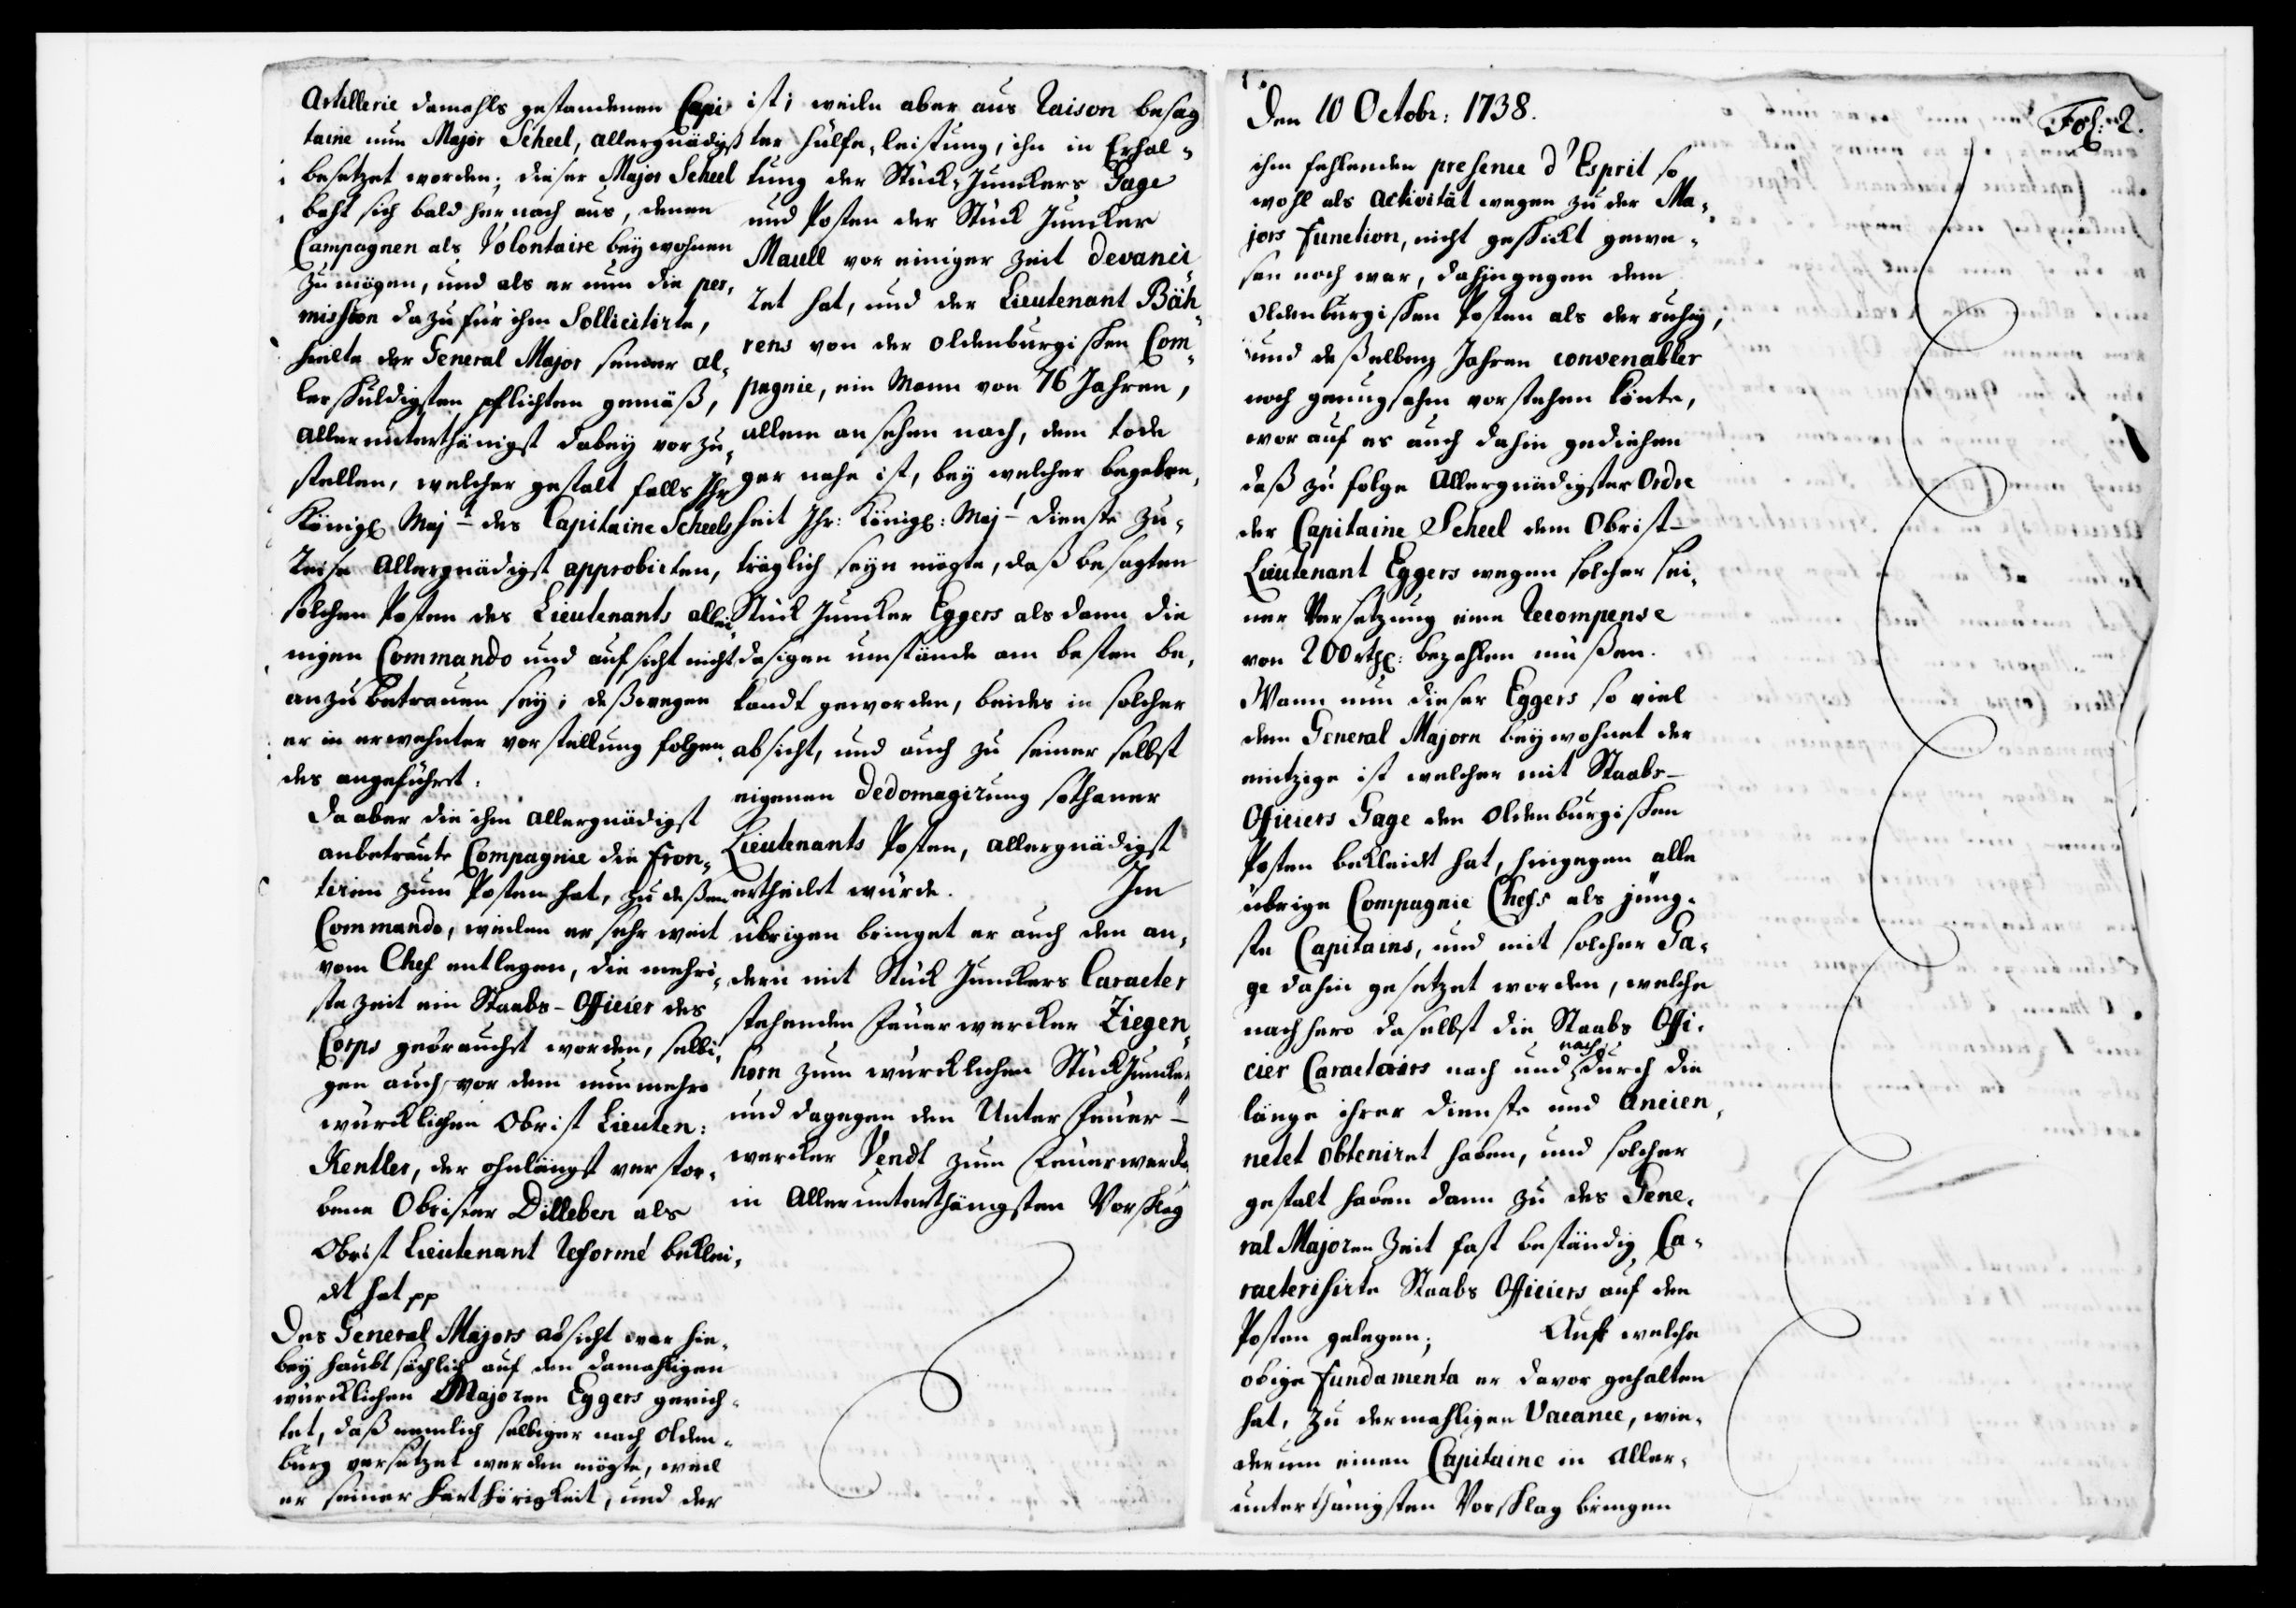 Artillerie damahls gestandenen Capi
taine nun Major Scheel, allergnädigst
besetzet worden; dieser Major Scheel
baht sich bald hernach aus, denen
Campagnen als Volontaire beÿwohnen
zu mögen, und als er nun die per-
mission dazu für ihm Sollicitirte,
hielte der General Major seiner al-
lerschuldigsten pflichten gemäß,
allerunterthänigst dabeÿ vorzu-
stellen, welcher gestalt falls Ihr
Königl Maj-t des Capitaine Scheels
Reise Allergnädigst approbirten,
solchen Posten des Lieutenants allei-
nigen Commando und aufsicht nicht
anzubetrauen seÿ; deßwegen
er in erwehnter vorstellung folgen-
des angeführt:
Da aber die ihm allergnädigst
anbetraute Compagnie die Fron-
tieren zum Posten hat, zu deßen
Commando, weilen er sehr weit
vom Chef entlegen, die mehri-
ste Zeit ein Staabs-Officier des
Corps gebraucht worden, selbi-
gen auch vor dem nunmehro
würcklichen Obrist Lieuten:
Kentler, der ohnlängst verstor-
bene Obrister Dilleben als
Obrist Lieutenant Reformé beklei-
det hat pp
Des General Majors absicht war hie-
beÿ haubtsächlich auf den damahligen
würcklichen Majoren Eggers gerich-
tet, daß nemlich selbiger nach Olden-
burg versetzet werden mögte, weil
er seiner Harthörigkeit, und der
ist; weile aber aus Raison besag
ter hülfe-leistung, ihn in Erhal-
tung der Stück-Junckers Gage
und Posten der Stück Juncker
Maull vor einiger Zeit devanci
ret hat, und der Lieutenant Bäh-
rens von der oldenburgischen Com-
pagnie, ein Mann von 76 Jahren,
allem ansehen nach, dem tode
gar nahe ist, beÿ welcher begeben-
heit Ihr: Königl: Maj-t Dienste zu-
träglich seÿn mögte, daß besagten
Stück Juncker Eggers alsdann die
dasigen umstände am besten be-
kandt geworden, beides in solcher
absicht, und auch zu seiner selbst
eigenen Dedomagirung sothaner
Lieutenants Posten, allergnädigst
ertheilet würde. Im
übrigen bringet er auch den an-
dern mit Stück Junckers Caracter
stehenden Feuerwercker Ziegen-
horn zum würcklichen Stück Juncker
und dagegen den Unter Feuer-
wercker Vendt zum Feuerwercker
in Allerunterthänigsten Vorschlag
Den 10 Octobr: 1738.
Fol: 2.
ihm fehlenden presence d'Esprit so
wohl als activität wegen zu der Ma-
jors Function, nicht geschickt gewe-
sen noch war, dahingegen dem
Oldenburgischen Posten als der ruhig,
und deßelben Jahren convenabler
noch genugsahm vorstehen könte,
worauf es auch dahin gediehen
daß zu folge Allergnädigster Ordre
der Capitaine Scheel dem Obrist-
Lieutenant Eggers wegen solcher sei-
ner Versetzung eine Recompense
von 200 rthl: bezahlen müßen.
Wann nun dieser Eggers so viel
dem General Majorn beÿwohnet der
eintzige ist welcher mit Staabs-
Officiers Gage den Oldenburgischen
Posten bekleidet hat, hingegen alle
übrige Compagnie Chefs als jüng-
ste Capitains, und mit solcher Ga-
ge dahin gesetzet worden, welche
nachhero daselbst die Staabs Offi-
cier Caracteurs nach und nach durch die
länge ihrer Dienste und Ancien-
netet obteniret haben, und solcher
gestalt haben dann zu des Gene-
ral Majoren Zeit fast beständig Ca-
racterisirte Staabs Officiers auf den
Posten gelegen; Auf welche
obige Fundamenta er davor gehalten
hat, zu dermahligen Vacance, wie-
derum einen Capitaine in Aller-
unterthänigsten Vorschlag bringen